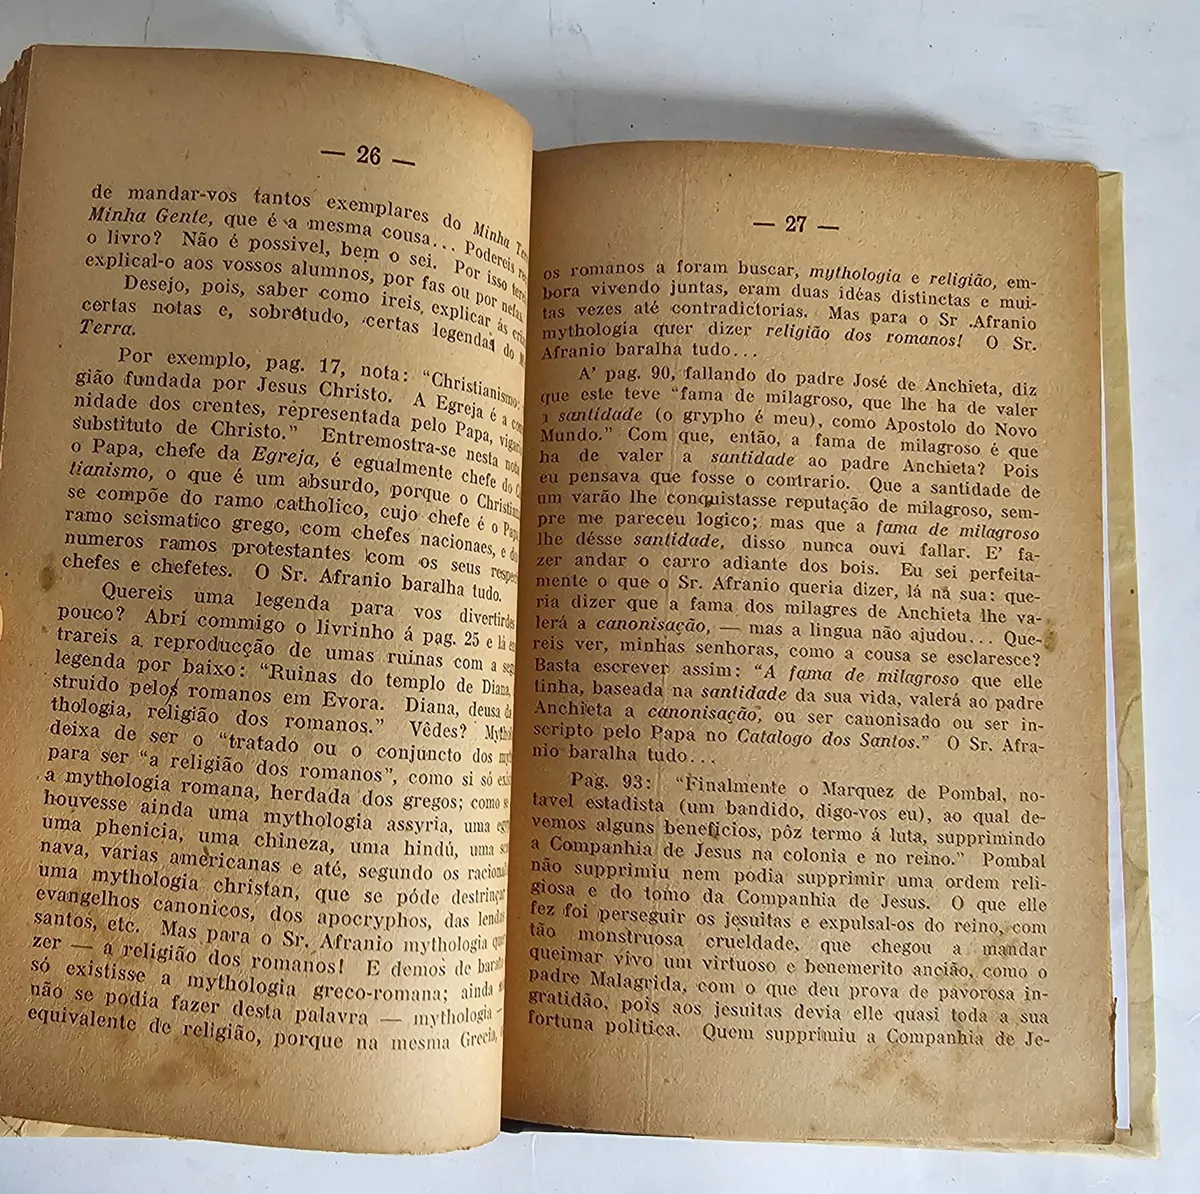 — 26 —
de mandar-vos tantos exemplares do Minha
Minha Gente, que é a mesma cousa... Podereis
o livro? Não é possivel, bem o sei. Por isso
explical-o aos vossos alumnos, por fas ou por nefas
Desejo, pois, saber como ireis, explicar ás
certas notas e, sobretudo, certas legendas do
Terra.
Por exemplo, pag. 17, nota: "Christianismo:
gião fundada por Jesus Christo. A Egreja é a
nidade dos crentes, representada pelo Papa,
substituto de Christo." Entremostra-se nesta nota
o Papa, chefe da Egreja, é egualmente chefe do
tianismo, o que é um absurdo, porque o
se compõe do ramo catholico, cujo chefe é o Papa
ramo scismatico grego, com chefes nacionaes, e
numeros ramos protestantes com os seus
chefes e chefetes. O Sr. Afranio baralha tudo.
Quereis uma legenda para vos divertirdes
pouco? Abri commigo o livrinho á pag. 25 e lá
trareis a reproducção de umas ruinas com a
legenda por baixo: "Ruinas do templo de Diana,
struido pelos romanos em Evora. Diana, deusa da
thologia, religião dos romanos." Vêdes?
deixa de ser o "tratado ou o conjuncto dos
para ser "a religião dos romanos", como si só
a mythologia romana, herdada dos gregos; como
houvesse ainda uma mythologia assyria, uma
uma phenicia, uma chineza, uma hindú, uma
nava, varias americanas e até, segundo os
uma mythologia christan, que se póde destrinçar
evangelhos canonicos, dos apocryphos, das lendas
santos, etc. Mas para o Sr. Afranio mythologia
zer — a religião dos romanos! E demos de barato
só existisse a mythologia greco-romana; ainda
não se podia fazer desta palavra — mythologia —
equivalente de religião, porque na mesma Grecia,
— 27 —
os romanos a foram buscar, mythologia e religião, em-
bora vivendo juntas, eram duas idéas distinctas e mui-
tas vezes até contradictorias. Mas para o Sr .Afranio
mythologia quer dizer religião dos romanos! O Sr.
Afranio baralha tudo...
A' pag. 90, fallando do padre José de Anchieta, diz
que este teve "fama de milagroso, que lhe ha de valer
a santidade (o grypho é meu), como Apostolo do Novo
Mundo." Com que, então, a fama de milagroso é que
ha de valer a santidade ao padre Anchieta? Pois
eu pensava que fosse o contrario. Que a santidade de
um varão lhe conquistasse reputação de milagroso, sem-
pre me pareceu logico; mas que a fama de milagroso
lhe désse santidade, disso nunca ouvi fallar. E' fa-
zer andar o carro adiante dos bois. Eu sei perfeita-
mente o que o Sr. Afranio queria dizer, lá na sua: que-
ria dizer que a fama dos milagres de Anchieta lhe va-
lerá a canonisação, — mas a lingua não ajudou... Que-
reis ver, minhas senhoras, como a cousa se esclaresce?
Basta escrever assim: "A fama de milagroso que elle
tinha, baseada na santidade da sua vida, valerá ao padre
Anchieta a canonisação, ou ser canonisado ou ser in-
scripto pelo Papa no Catalogo dos Santos." O Sr. Afra-
nio baralha tudo...
Pag. 93: "Finalmente o Marquez de Pombal, no-
tavel estadista (um bandido, digo-vos eu), ao qual de-
vemos alguns beneficios, pôz termo á luta, supprimindo
a Companhia de Jesus na colonia e no reino." Pombal
não supprimiu nem podia supprimir uma ordem reli-
giosa e do tomo da Companhia de Jesus. O que elle
fez foi perseguir os jesuitas e expulsal-os do reino, com
tão monstruosa crueldade, que chegou a mandar
queimar vivo um virtuoso e benemerito ancião, como o
padre Malagrida, com o que deu prova de pavorosa in-
gratidão, pois aos jesuitas devia elle quasi toda a sua
fortuna politica. Quem supprimiu a Companhia de Je-